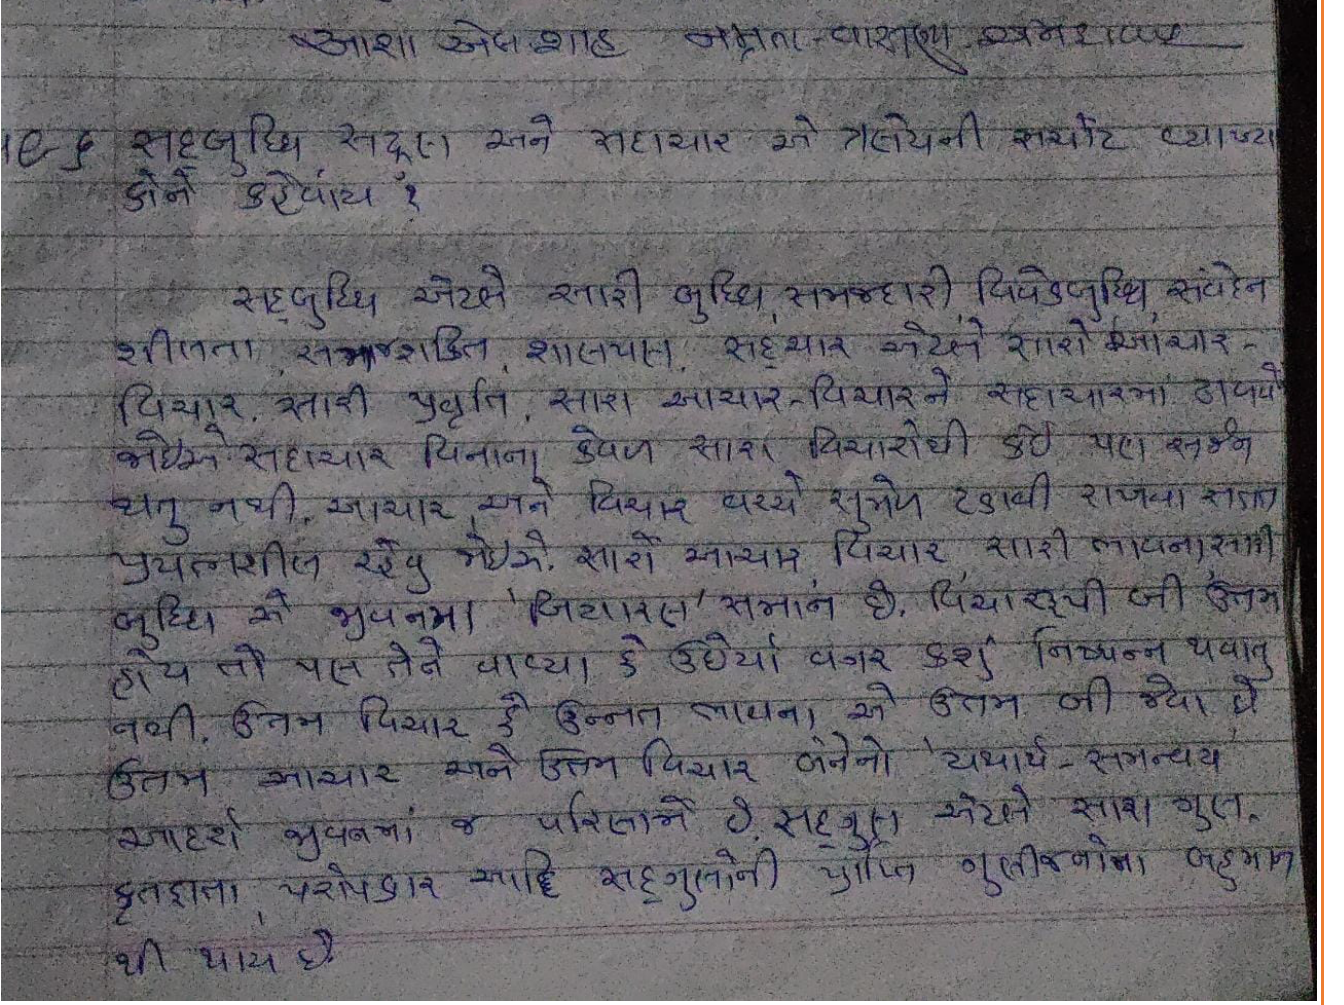 આશા એલ. શાહ નમ્રતા - વાસણા અમદાવાદ
સદ્દબુધ્ધિ સદ્ગુણ અને સદાચાર એ ત્રણેયની સચોટ વ્યાખ્યા
કોને કહેવાય ?
સદ્દબુધ્ધિ એટલે સારી બુધ્ધિ, સમજદારી, વિવેકબુધ્ધિ, સંવેદન
શીલતા, સમજશકિત, શાણપણ, સદ્દચાર એટલે સારો આચાર -
વિચાર, સારી પ્રવૃતિ, સારા આચાર-વિચારને સદાચારમાં
જોઈએ સદાચાર વિનાના કેવળ સારા વિચારોથી કંઈ પણ સર્જન
થતુ નથી. આચાર અને વિચાર વચ્ચે સુમેળ ટકાવી રાખવા સતત
પ્રયત્નશીલ રહેવુ જોઈએ. સારો આચાર, વિચાર સારી ભાવના, સારી
બુધ્ધિ એ જીવનમાં 'બિયારણ' સમાન છે. વિચારરૂપી બી ઉતમ
હોય તો પણ તેને વાવ્યા કે ઉછેર્યા વગર કશું નિષ્પન્ન થવાનુ
નથી. ઉતમ વિચાર કે ઉન્નત ભાવના એ ઉતમ બી જેવા છે
ઉતમ આચાર અને ઉત્તમ વિચાર બંનેનો 'યથાર્થ - સમન્વય'
આદર્શ જીવનમાં જ પરિણામે છે. સદ્દગુણ એટલે સારા ગુણ.
કૃતજ્ઞતા, પરોપકાર આદિ સદ્દગુણોની પ્રાપ્તિ ગુણીજનોના બહુમાન
થી થાય છે